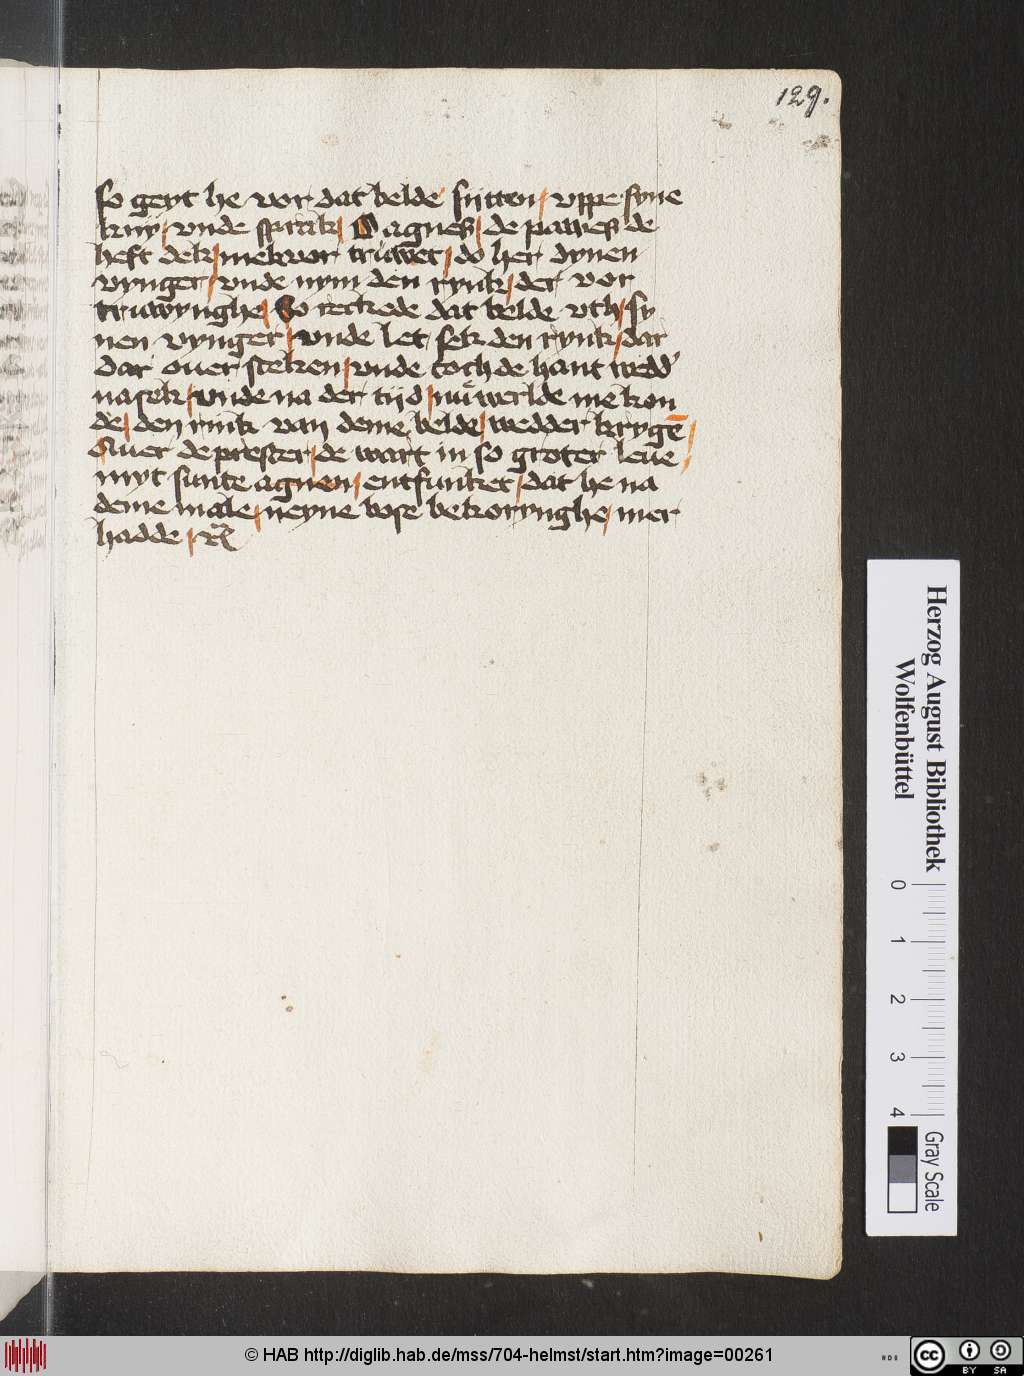 129.
so geyt he vor dat belde sutten / vppe syne
kny / vnde sprak / O agnes / de pawes de
heft dek / mek vor truwet / do her dynen
vynger / vnde nym den rynk / der vor
truwynghe / So reckede dat belde vth / sy
nen vynger / vnde let sek den rynk / dar
dar ouer steken / vnde toch de hant wedd'
na sek / vnde na der tijd / nuwerlde me kon
de / den rink van deme belde / wedder krygē /
Auer de prester / de wart in so groter leue /
myt sunte agnen / entfunket / dat he na
deme male / neyne bose bekorynghe / mer
hadde /
Herzog August Bibliothek
Wolfenbüttel
0 1 2 3 4
Gray Scale
© HAB http://diglib.hab.de/mss/704-helmst/start.htm?image=00261
HAB
cc BY SA